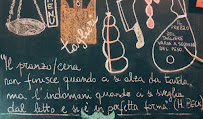 IL PREZZO
DEL
TAGLIERE
VARIA A SECONDA
DEL PESO
"Il pranzo/cena
non finisce quando ci si alza da tavola
ma l'indomani quando ci si sveglia
dal letto e si è in perfetta forma" (H. Beck)